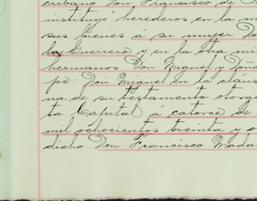 cribano Don Francisco de
instituyó herederos en la m
sus bienes á su mujer Do
la Guerrera y en la otra mi
hermanos Don Miguel y Doña
pé: Don Miguel en la cláusu
na de su testamento otorga
ta Capital á catorce de
mil ochocientos treinta y o
dicho Don Francisco Mada